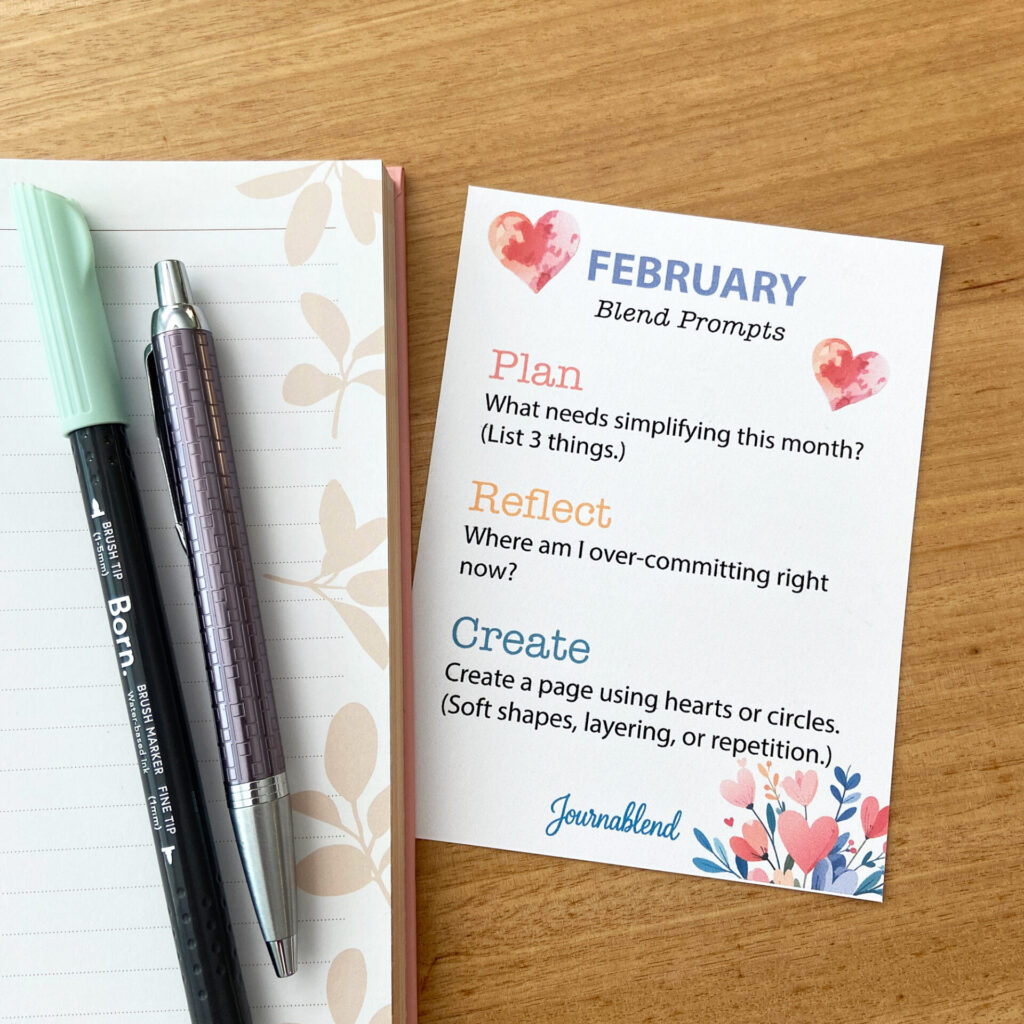 FEBRUARY
Blend Prompts
Plan
What needs simplifying this month?
(List 3 things.)
Reflect
Where am I over-committing right
now?
Create
Create a page using hearts or circles.
(Soft shapes, layering, or repetition.)
Journablend
BRUSH TIP
(1-5mm)
Born.
BRUSH MARKER
Water-based ink
FINE TIP
(1mm)